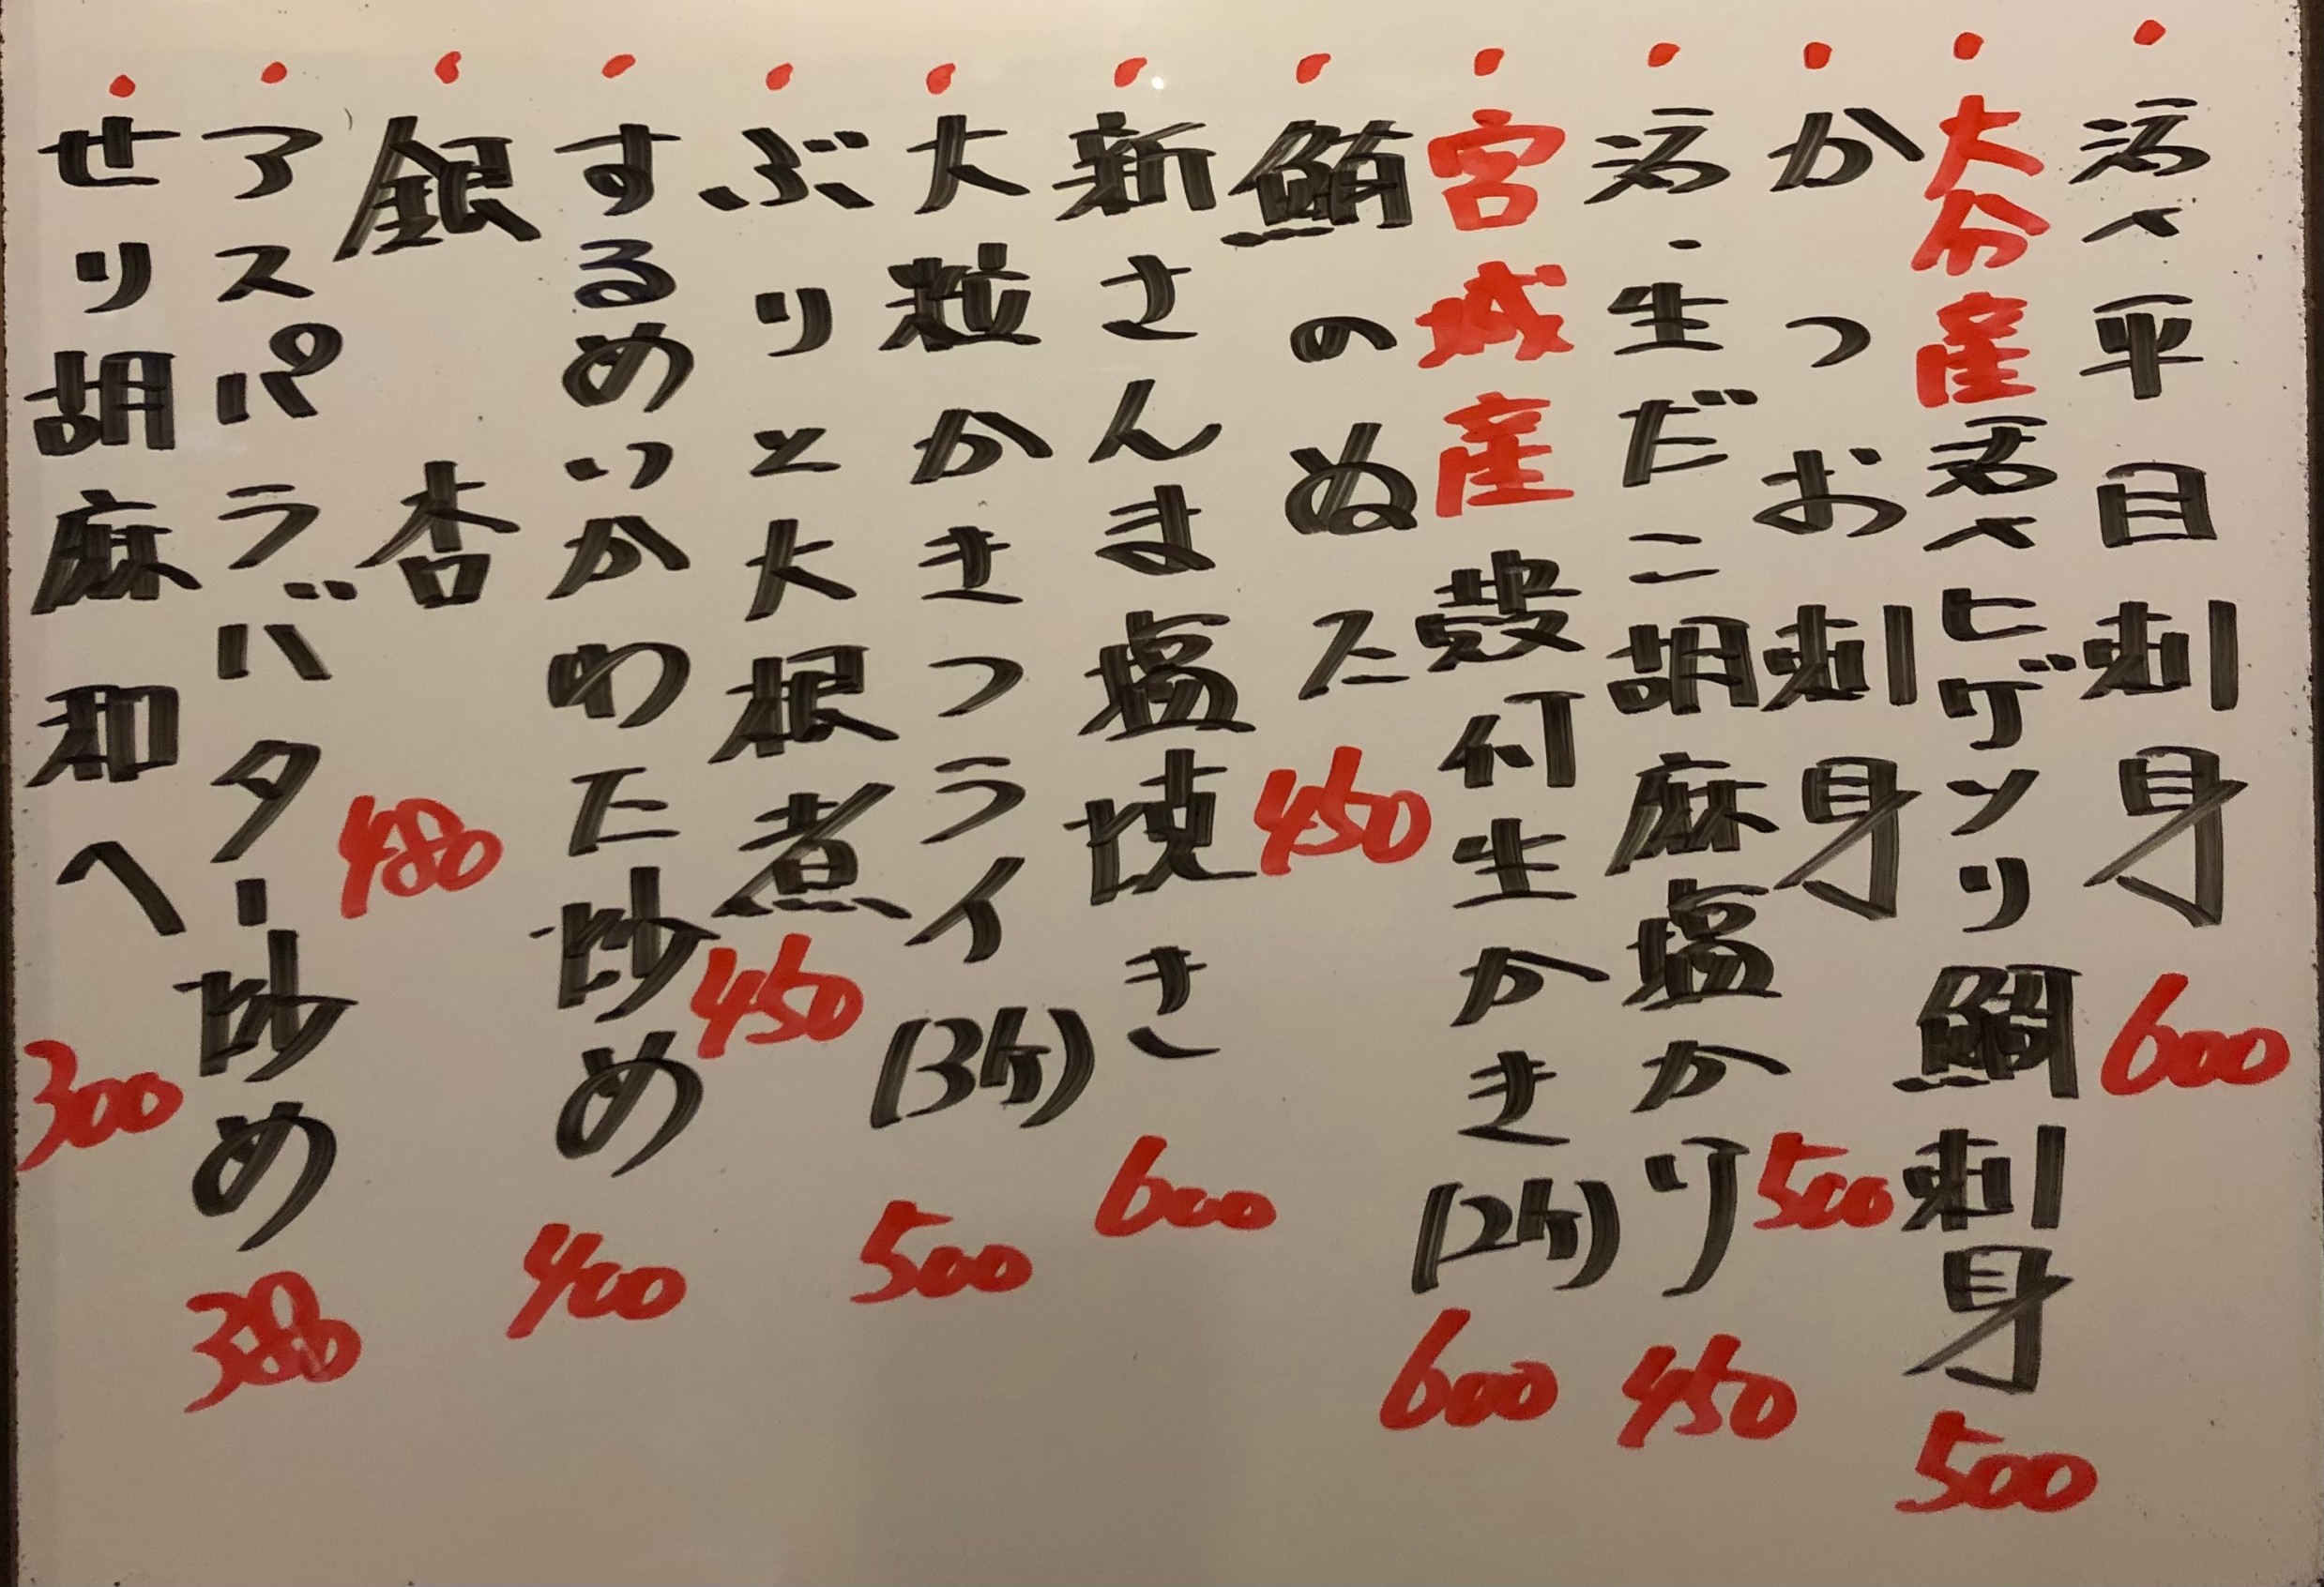 ・活〆平目刺身 600
・大分産活〆ヒゲソリ鯛刺身 500
・かつお刺身 500
・活・生だこ胡麻塩かり 450
・宮城産殻付生かき(2ケ) 600
・鮪のぬた 450
・新さんま塩焼き 600
・大粒かきフライ(3ケ) 500
・ぶりと大根煮 450
・するめいかわた炒め 400
・銀杏 480
・アスパラバター炒め 380
・せり胡麻和へ 300